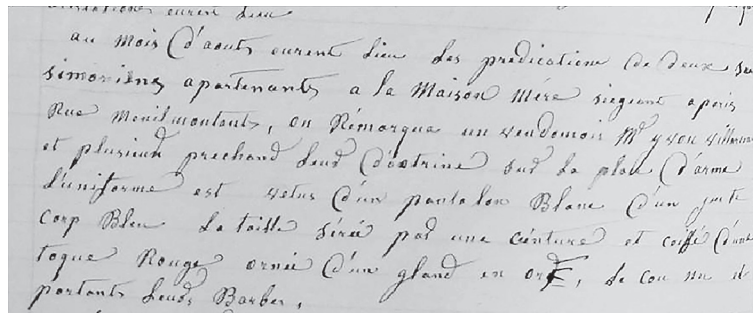 eurent Lieu
au Mois d'aouts eurent Lieu des predications de deux
simoniens apartenants a la Maison Mére siegeant aparis
Rue Menilmontants, on Rémarque un vendomois Mr yvon
et plusieurs prechand Leurs doctrine sur La place d'arme
L'uniforme est vetus d'un pantalon Blanc d'un juste
corp Bleu La taille sérée par une ceinture et coiffé d'une
toque Rouge ornée d'un gland en or, Le cou nu
portants Leurs Barbes,